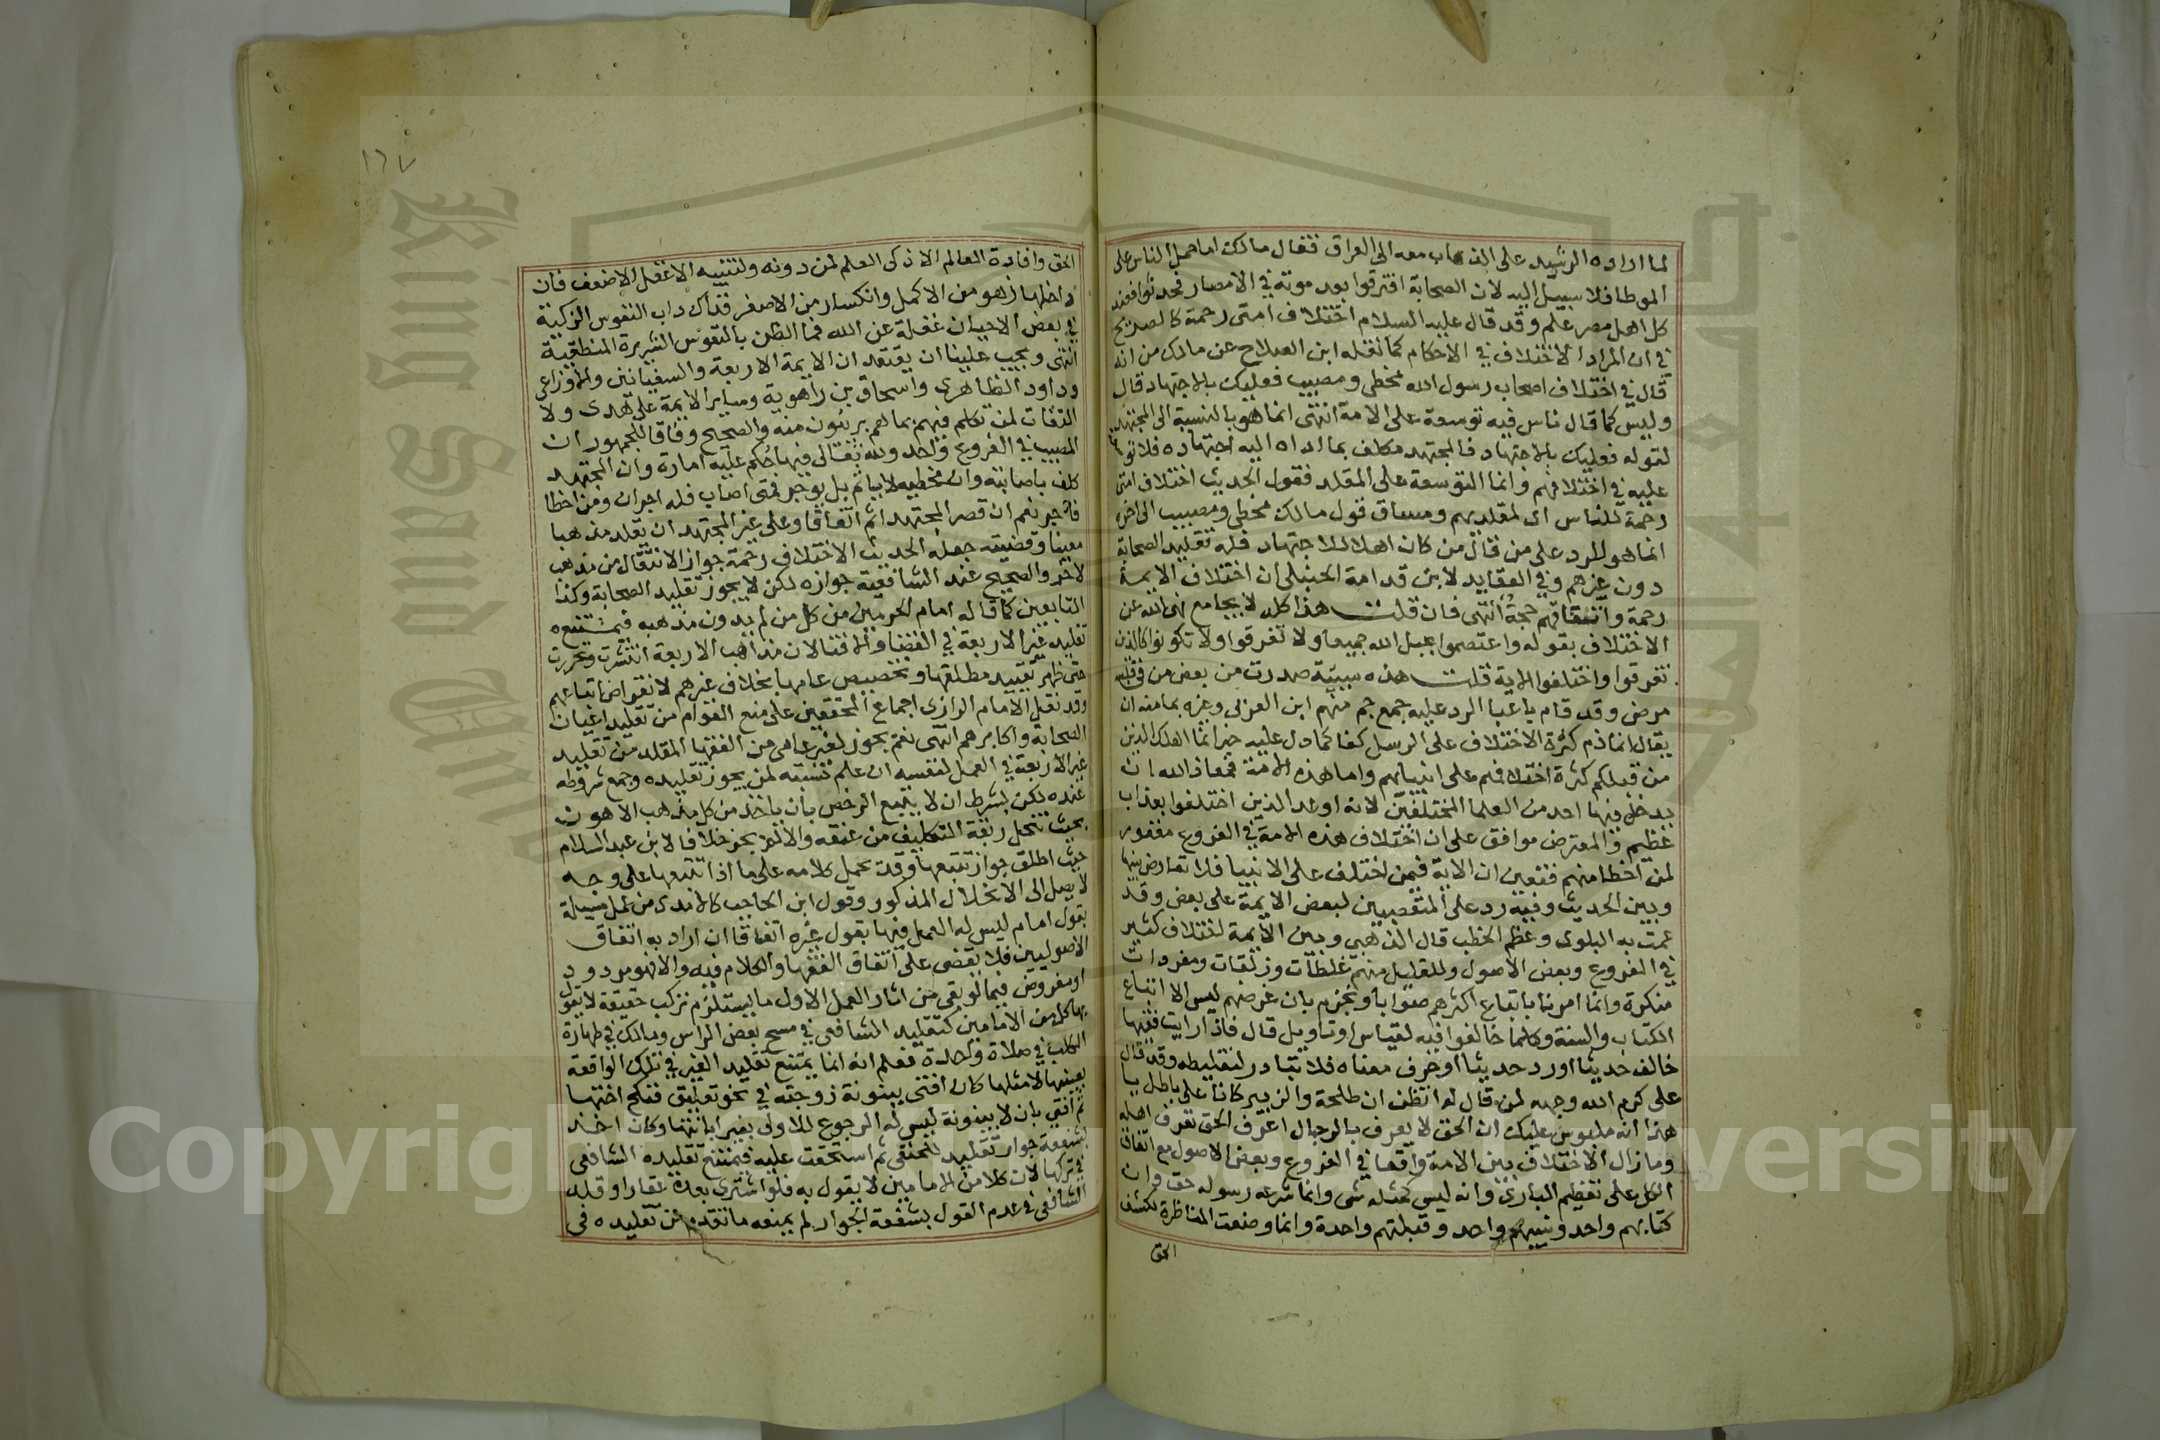 لما اراده الرشيد على الذهاب معه الى العراق فقال مالك اما حمل الناس على
الموطا فلا سبيل اليه لان الصحابة افترقوا بعد موته في الامصار فحدثوا فعند
كل اهل مصر علم وقد قال عليه السلام اختلاف امتى رحمة كالصريح
في ان المراد الاختلاف في الاحكام كما نقله ابن الصلاح عن مالك من انه
قال في اختلاف اصحاب رسول الله مخطى ومصيب فعليك بالاجتهاد قال
وليس كما قال ناس فيه توسعة على الامة انتهى انما هو بالنسبة الى المجتهد
لقوله فعليك بالاجتهاد فالمجتهد مكلف بما اداه اليه اجتهاده فلا توسعة
عليه في اختلافهم وانما التوسعة على المقلد فقول الحديث اختلاف امتى
رحمة للناس اى لمقلديهم ومساق قول مالك مخطى ومصيب الى اخره
انما هو للرد على من قال من كان اهلا للاجتهاد فله تقليد الصحابة
دون غيرهم وفي العقايد لابن قدامة الحنبلى ان اختلاف الايمة
رحمة واتفاقهم حجة انتهى فان قلت هذا كله لا يجامع نهى الله عن
الاختلاف بقوله واعتصموا بحبل الله جميعا ولا تفرقوا ولا تكونوا كالذين
تفرقوا واختلفوا الاية قلت هذه سبيبة صدرت من بعض من في قلبه
مرض وقد قام باعبا الرد عليه جمع جم منهم ابن العربي وغيره بما منه ان
يقال انما ذم كثرة الاختلاف على الرسل كفا كما دل عليه خبر انما اهلك الذين
من قبلكم كثرة اختلافهم على انبيائهم واما هذه الامة فمعاذ الله ان
يدخل فيها احد من العلما المختلفين لانه اوعد الذين اختلفوا بعذاب
عظيم والمعترض موافق على ان اختلاف هذه الامة في الفروع مغفور
لمن اخطا منهم فتعين ان الاية فيمن اختلف على الانبيا فلا تعارض بينها
وبين الحديث وفيه رد على المتعصبين لبعض الايمة على بعض وقد
عمت به البلوى وعظم الخطب قال الذهبى وبين الايمة اختلاف كثير
في الفروع وبعض الاصول وللقليل منهم غلطات وزلقات ومفردات
منكرة وانما امرنا باتباع اكثرهم صوابا ونجزم بان غرضهم ليس الا اتباع
الكتاب والسنة وكلما خالفوا فيه لقياس او تاويل قال فاذا رايت فقيها
خالف حديثا او رد حديثا او حرف معناه فلا تبادر لتغليطه وقد قال
على كرم الله وجهه لمن قال له اتظن ان طلحة والزبير كانا على باطل يا
هذا انه ملبوس عليك ان الحق لا يعرف بالرجال اعرف الحق تعرف اهله
وما زال الاختلاف بين الامة واقعا في الفروع وبعض الاصول مع اتفاق
الكل على تعظيم البارى وانه ليس كمثله شى وانما شرعه رسوله حق وان
كتابهم واحد ونبيهم واحد وقبلتهم واحدة وانما وضعت المناظرة لكشف
الحق
١٦٧
الحق وافادة العالم الاذكى العلم لمن دونه ولتنبيه الاغفل الاضعف فان
داخلها زهو من الاكمل وانكسار من الاصغر فذاك داب النفوس الزكية
في بعض الاحيان غفلة عن الله فما الظن بالنفوس الشريرة المنطقية
انتهى ويجب علينا ان يعتقد ان الايمة الاربعة والسفيانين والاوزاعى
وداود الظاهرى واسحاق بن راهوية وساير الايمة على هدى ولا
التفات لمن تكلم فيهم بما هم بريئون منه والصحيح وفاقا للجمهور ان
المصيب في الفروع واحد ولله تعالى فيها حكم عليه امارة وان المجتهد
كلف باصابته وان مخطيه لا ياثم بل يوجر فمتى اصاب فله اجران ومن اخطا
فاجر نعم ان قصر المجتهد اثم اتفاقا وعلى غير المجتهد ان يقلد مذهبا
معينا وقضيته جعله الحديث الاختلاف رحمة جواز الانتقال من مذهب
لاخر والصحيح عند الشافعية جوازه لكن لا يجوز تقليد الصحابة وكذا
التابعين كما قاله امام الحرمين من كل من لم يدون مذهبه فيمتنع
تقليد غير الاربعة في القضا والافتا لان مذاهب الاربعة انتشرت وتحررت
حتى ظهر تقييد مطلقها وتخصيص عامها بخلاف غيرهم لانقراض اتباعهم
وقد نقل الامام الرازى اجماع المحققين على منع العوام من تقليد اعيان
الصحابة واكابرهم انتهى نعم يجوز لغير عامى من الفقها المقلد من تقليد
غير الاربعة في العمل لنفسه ان علم نسبته لمن يجوز تقليده وجمع شروطه
عنده لكن بشرط ان لا يتتبع الرخص بان ياخذ من كل مذهب الاهون
بحيث تنحل ربقة التكليف من عنقه والا لم يجز خلافا لابن عبد السلام
حيث اطلق جواز تتبعها وقد يحمل كلامه على ما اذا تتبعها على وجه
لا يصل الى الانحلال المذكور وقول ابن الحاجب كالامدى من عمل مسيلة
بقول امام ليس له العمل فيها بقول غيره اتفاقا ان اراد به اتفاق
الاصوليين فلا تقضى على اتفاق الفقها والكلام فيه والا فهو مردود
او مفروض فيما لو بقى من اثار العمل الاول ما يستلزم تركب حقيقة لا يقول
بها كل من الامامين كتقليد الشافعى في مسح بعض الراس ومالك في طهارة
الكلب في صلاة واحدة فعلم انه انما يمتنع تقليد الغير في تلك الواقعة
بعينها لا مثلها كان افتى ببينونة زوجته في نحو تعليق فنكح اختها
ثم افتى بان لا بينونة ليس له الرجوع للاولى بغير ابانتها وكان اخذ
بشفعة جوار تقليد للحنفى ثم استحقت عليه فيمتنع تقليده الشافعى
في تركها لان كلا من الامامين لا يقول به فلو اشترى بعده عقارا وقلد
الشافعى في عدم القول بشفعة الجوار لم يمنعه ما تقدم من تقليده في
Copyright
University
King Saud